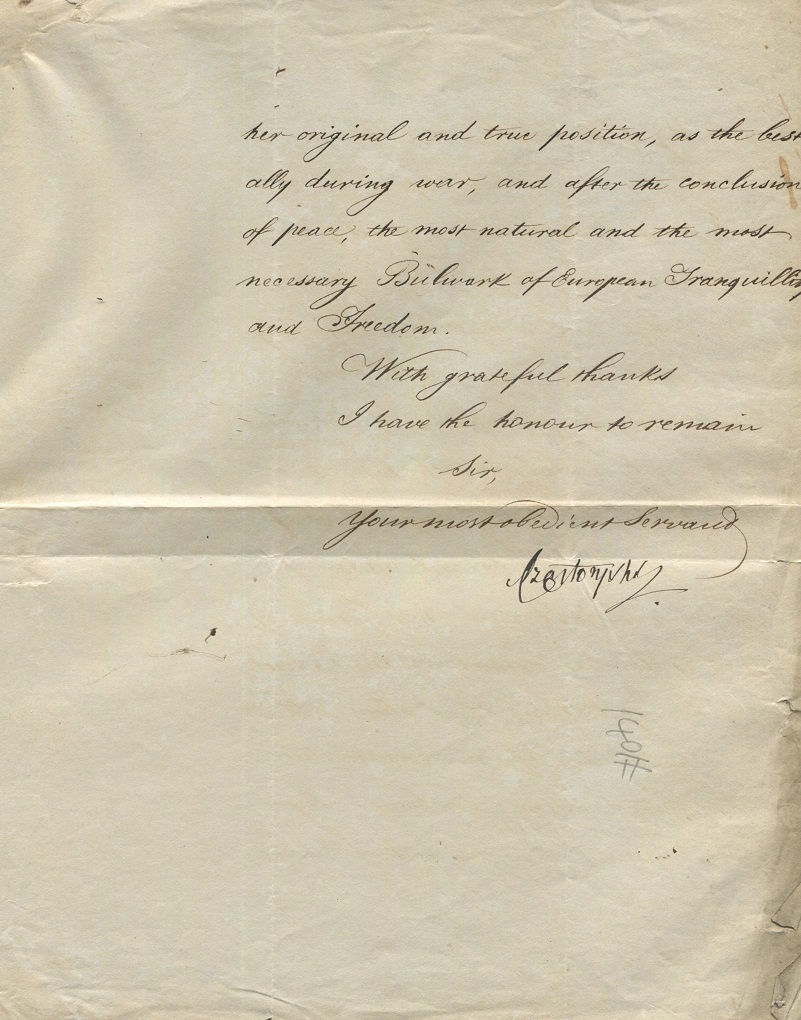 her original and true position, as the best
ally during war, and after the conclusion
of peace, the most natural and the most
necessary Bulwark of European Tranquillity
and Freedom.
With grateful thanks
I have the honour to remain
Sir,
Your most obedient Servand